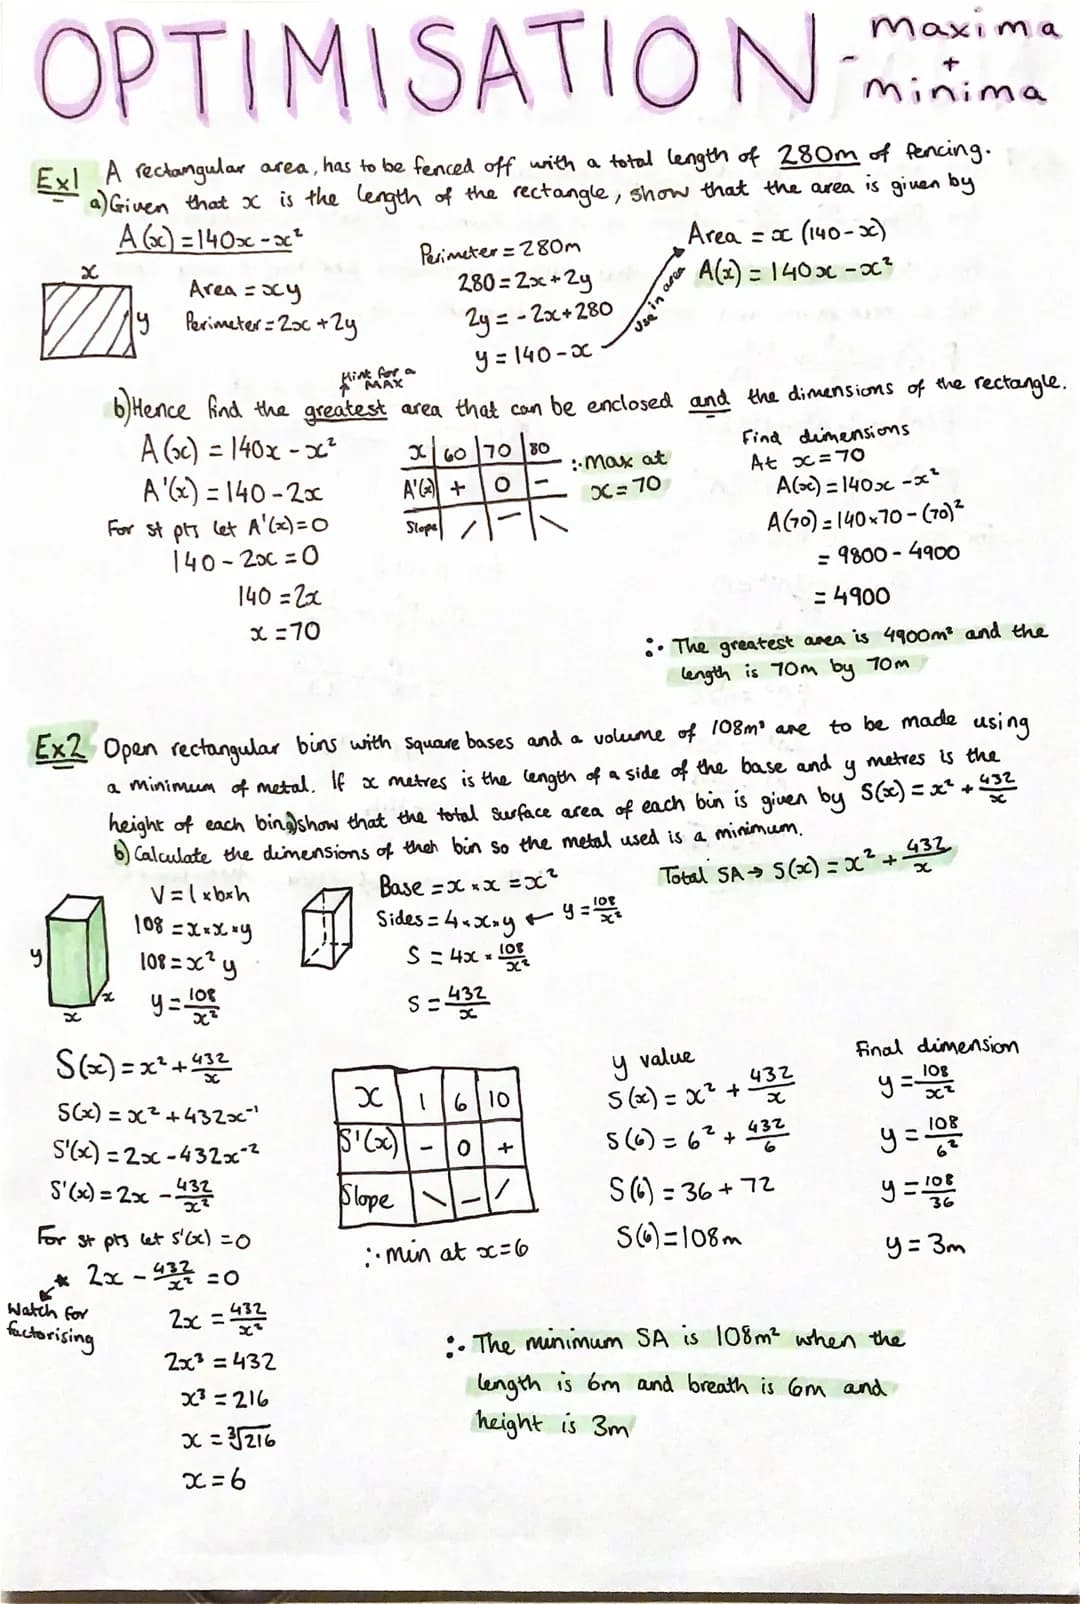 OPTIMISATION - maxima + minima
Ex1 A rectangular area, has to be fenced off with a total length of 280m of fencing.
a) Given that x is the length of the rectangle, show that the area is given by
A(x) = 140x - x²
x
y
Area = xy
Perimeter = 2x + 2y
Perimeter = 280m
280 = 2x + 2y
2y = - 2x + 280
y = 140 - x
use in area
Area = x (140 - x)
A(x) = 140x - x²
Hint for a MAX
b) Hence find the greatest area that can be enclosed and the dimensions of the rectangle.
A(x) = 140x - x²
A'(x) = 140 - 2x
For st pts let A'(x) = 0
140 - 2x = 0
140 = 2x
x = 70
x | 60 | 70 | 80
A'(x) | + | 0 | -
Slope | / | — | \
∴ Max at
x = 70
Find dimensions
At x = 70
A(x) = 140x - x²
A(70) = 140 × 70 - (70)²
= 9800 - 4900
= 4900
∴ The greatest area is 4900m² and the
length is 70m by 70m
Ex2 Open rectangular bins with square bases and a volume of 108m³ are to be made using
a minimum of metal. If x metres is the length of a side of the base and y metres is the
height of each bin a) show that the total surface area of each bin is given by S(x) = x² + 432/x
b) Calculate the dimensions of theh bin so the metal used is a minimum.
y
x
x
V = l × b × h
108 = x × x × y
108 = x² y
y = 108/x²
Base = x × x = x²
Sides = 4 × x × y ← y = 108/x²
S = 4x × 108/x²
S = 432/x
Total SA → S(x) = x² + 432/x
S(x) = x² + 432/x
S(x) = x² + 432x⁻¹
S'(x) = 2x - 432x⁻²
S'(x) = 2x - 432/x²
For st pts let s'(x) = 0
* 2x - 432/x² = 0
Watch for
factorising
2x = 432/x²
2x³ = 432
x³ = 216
x = ∛216
x = 6
x | 1 | 6 | 10
S'(x) | - | 0 | +
Slope | \ | — | /
∴ min at x = 6
y value
S(x) = x² + 432/x
S(6) = 6² + 432/6
S(6) = 36 + 72
S(6) = 108m
Final dimension
y = 108/x²
y = 108/6²
y = 108/36
y = 3m
∴ The minimum SA is 108m² when the
length is 6m and breath is 6m and
height is 3m